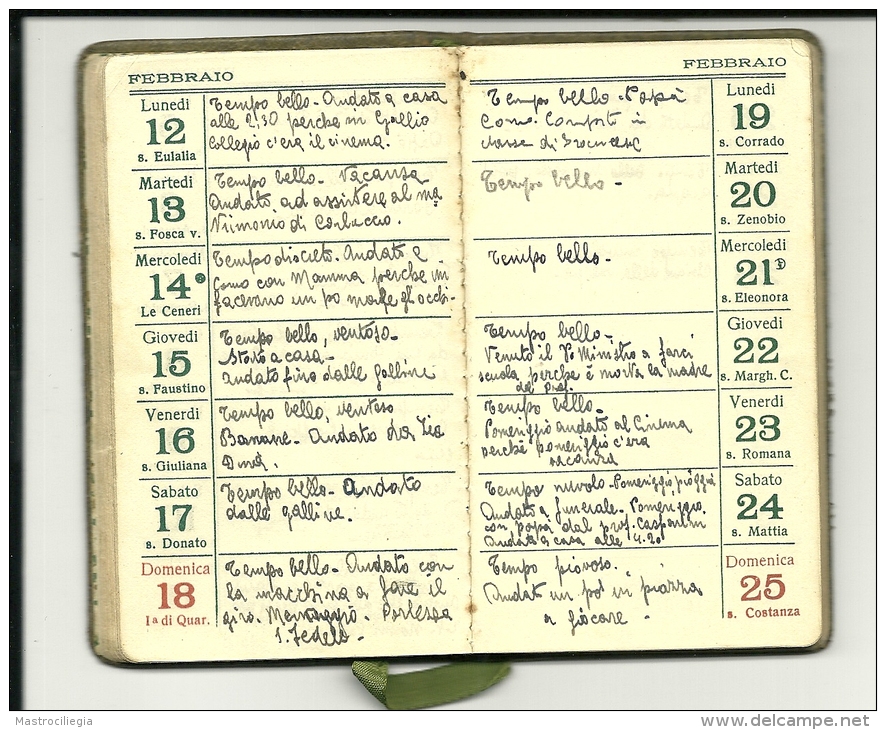 FEBBRAIO
Lunedi
12
s. Eulalia
Tempo bello - Andato a casa
alle 2,30 perche in Gallio
Collegio c'era il cinema.
Martedi
13
s. Fosca v.
Tempo bello - Vacanza
Andato ad assistere al ma
trimonio di
Mercoledi
14
Le Ceneri
Tempo discreto. Andato a
Como con Mamma perche mi
facevano un po male gli occhi-
Giovedi
15
s. Faustino
Tempo bello, ventoso-
Stato a casa-
Andato fino dalle galline
Venerdi
16
s. Giuliana
Tempo bello, ventoso
Banane - Andato da Zia
Dina.
Sabato
17
s. Donato
Tempo bello - Andato
dalle galline.
Domenica
18
Iª di Quar.
Tempo bello - Andato con
la macchina a fare il
giro. Menaggio - Porlezza
S. Fedele -
FEBBRAIO
Lunedi
19
s. Corrado
Tempo bello - Papà
Como. Composto in
classe di
Martedi
20
s. Zenobio
Tempo bello -
Mercoledi
21
s. Eleonora
Tempo bello -
Giovedi
22
s. Margh. C.
Tempo bello -
Venuto il Ministro a farci
scuola perche è morta la madre
del prof.
Venerdi
23
s. Romana
Tempo bello -
Pomeriggio andato al Cinema
perchè pomeriggio c'era
vacanza
Sabato
24
s. Mattia
Tempo nuvolo - Pomeriggio pioggia
Andato a funerale. Pomeriggio
con papà dal prof. Casparini
Andato a casa alle 4.20
Domenica
25
s. Costanza
Tempo piovoso.
Andato un po' in piazza
a giocare -
Mastrociliegia
delcampe.net